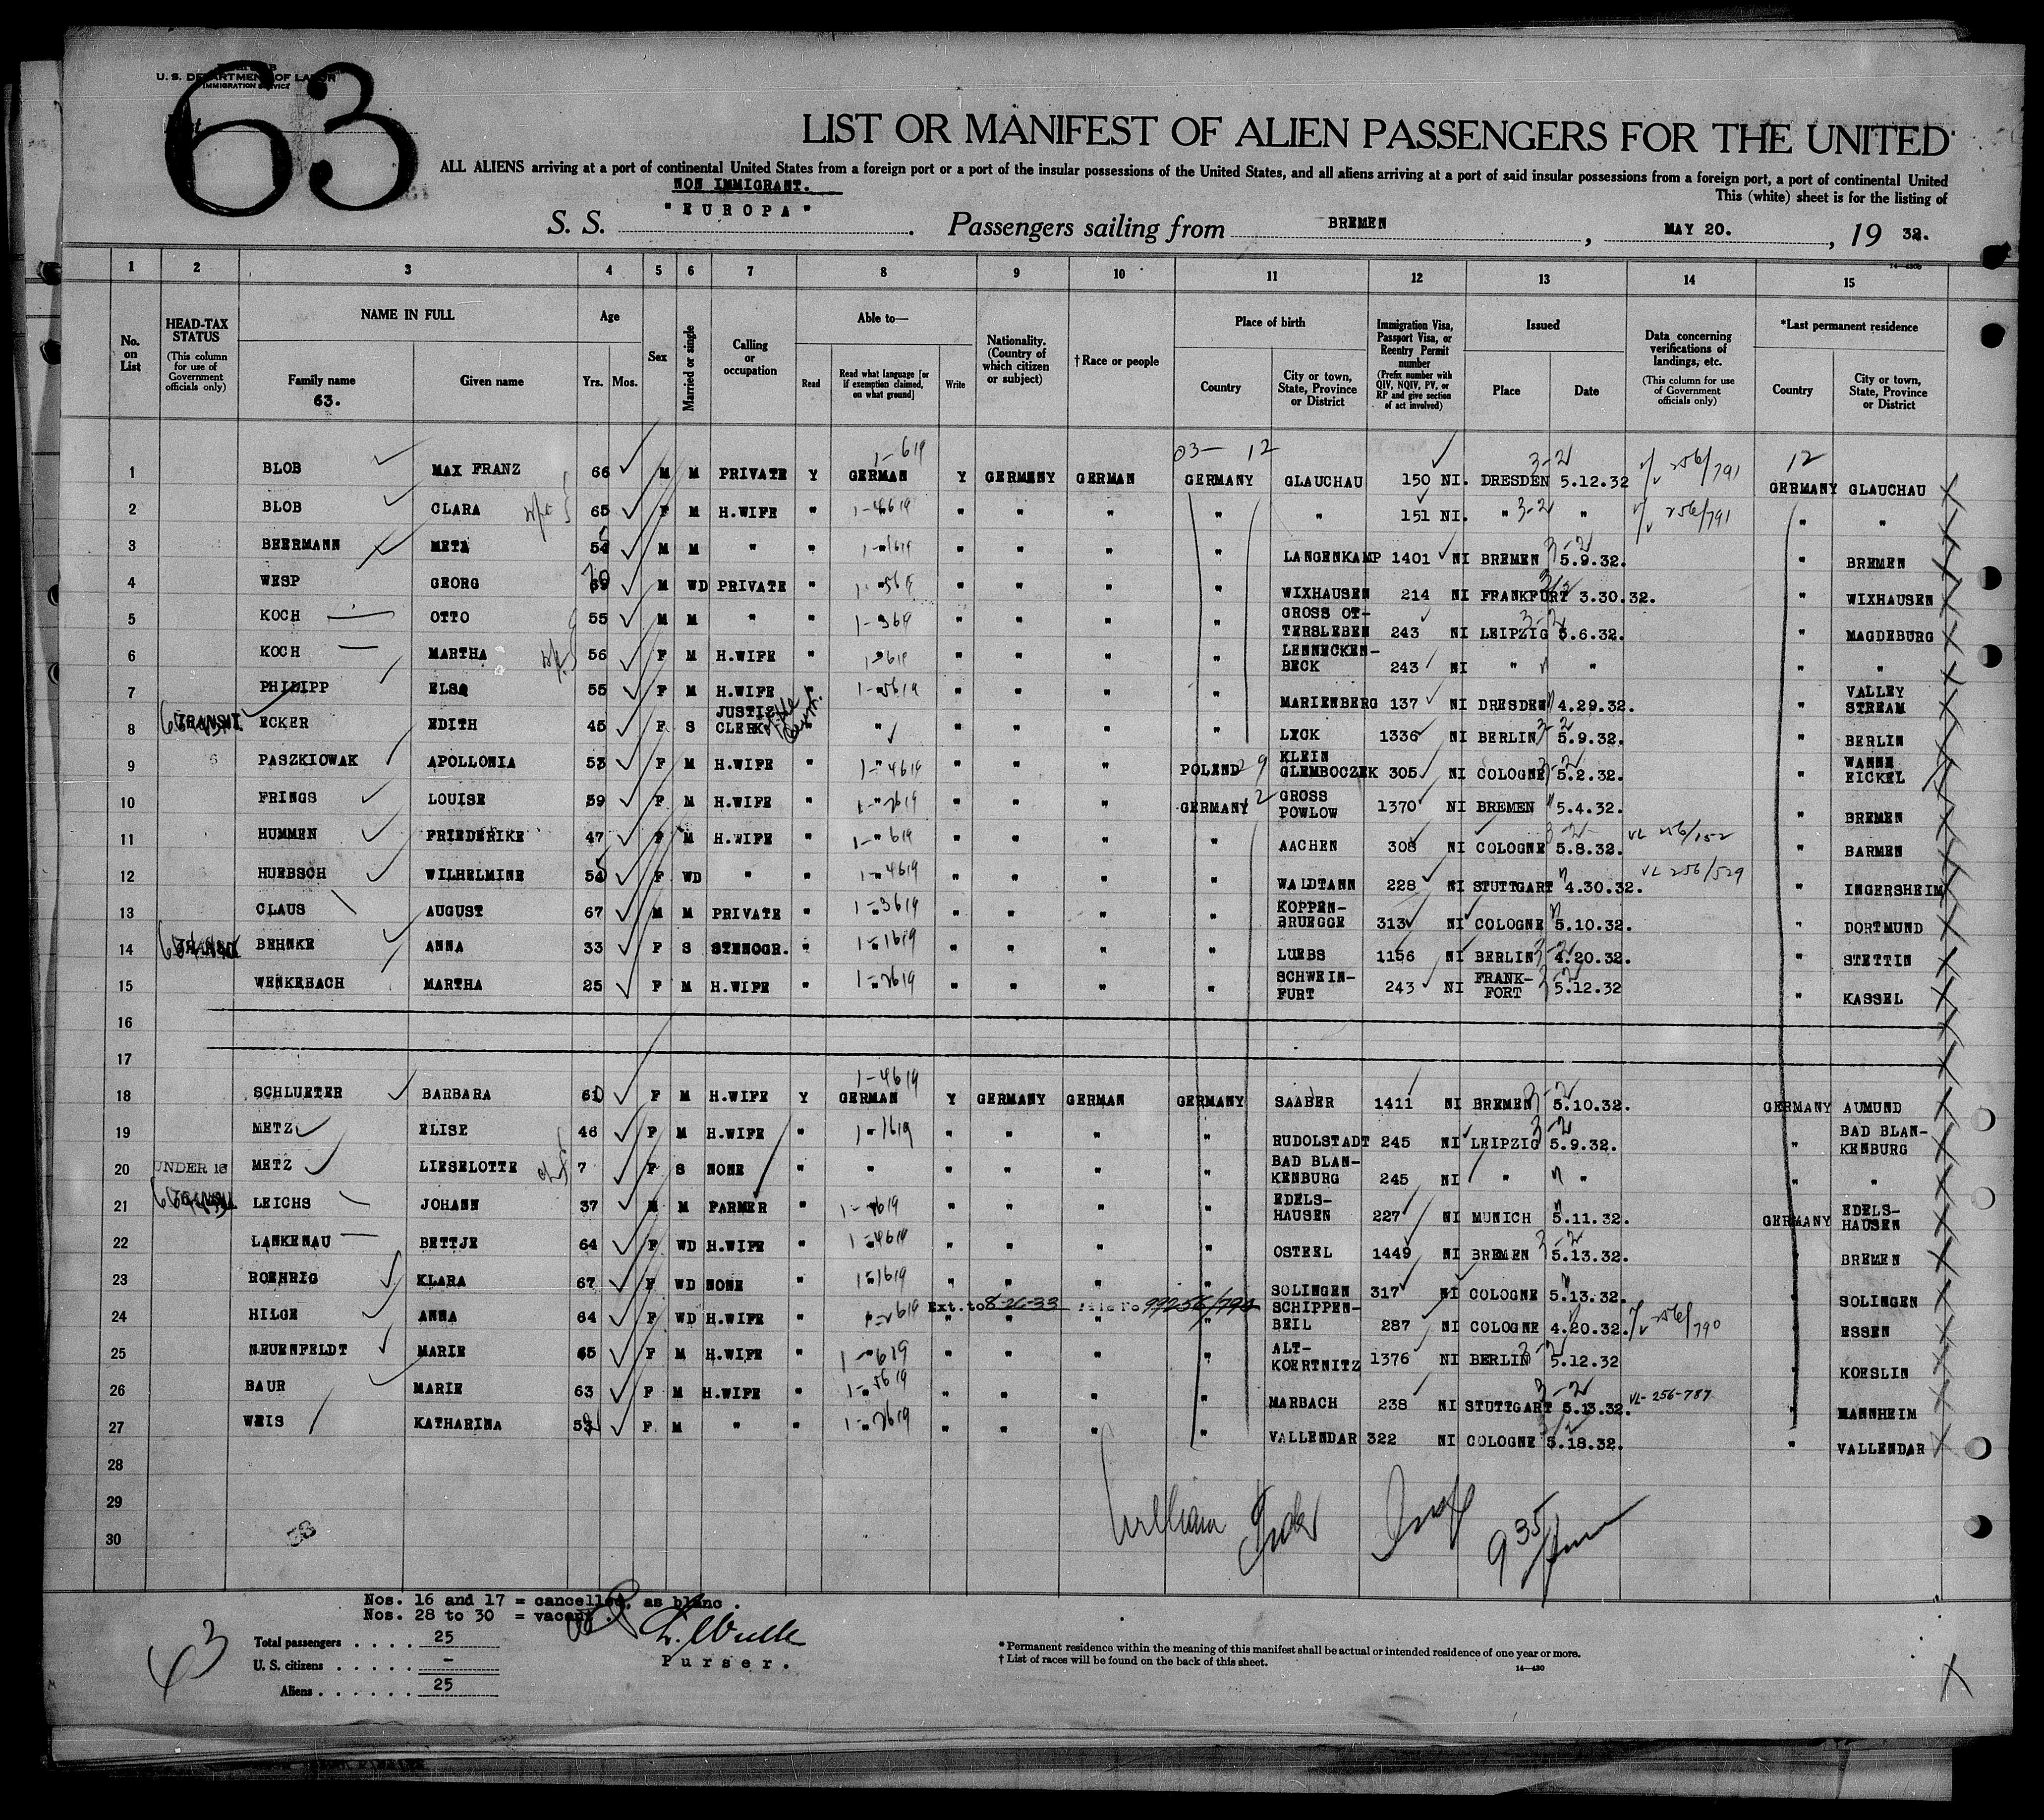 U. S. DEPARTMENT OF LABOR
IMMIGRATION SERVICE
63
LIST OR MANIFEST OF ALIEN PASSENGERS FOR THE UNITED
ALL ALIENS arriving at a port of continental United States from a foreign port or a port of the insular possessions of the United States, and all aliens arriving at a port of said insular possessions from a foreign port, a port of continental United
NON IMMIGRANT.
This (white) sheet is for the listing of
S. S. "EUROPA". Passengers sailing from BREMEN, MAY 20., 19 32.
14—430b
1 2 3 4 5 6 7 8 9 10 11 12 13 14 15
No. on List
HEAD-TAX STATUS (This column for use of Government officials only)
NAME IN FULL
Family name 63.
Given name
Age Yrs. Mos.
Sex
Married or single
Calling or occupation
Able to—
Read
Read what language [or if exemption claimed, on what ground]
Write
Nationality. (Country of which citizen or subject)
† Race or people
Place of birth
Country
City or town, State, Province or District
Immigration Visa, Passport Visa, or Reentry Permit number (Prefix number with QIV, NQIV, PV, or RP and give section of act involved)
Issued
Place
Date
Data concerning verifications of landings, etc. (This column for use of Government officials only)
*Last permanent residence
Country
City or town, State, Province or District
03— 12
1 BLOB MAX FRANZ 66 M M PRIVATE Y GERMAN 1-619 Y GERMENY GERMAN GERMANY GLAUCHAU 150 NI. DRESDEN 3-2 5.12.32 256/791 12 GERMANY GLAUCHAU
2 BLOB CLARA wife 65 F M H.WIFE " 1-4619 " " " " " 151 NI. " 3-2 " 256/791 " "
3 BEERMANN META M M " " 1-1619 " " " " LANGENKAMP 1401 NI BREMEN 3-2 5.9.32. " BREMEN
4 WESP GEORG M WD PRIVATE " " " " " WIXHAUSEN 214 NI FRANKFURT 3.30.32. " WIXHAUSEN
5 KOCH OTTO 55 M M " " 1-3619 " " " " GROSS OT-TERSLEBEN 243 NI LEIPZIG 3-2 5.6.32. " MAGDEBURG
6 KOCH MARTHA wife 56 F M H.WIFE " 1-619 " " " " LENNECKEN-BECK 243 NI " " " "
7 PHILIPP ELSA 55 F M H.WIFE " 1-5619 " " " " MARIENBERG 137 NI DRESDEN 4.29.32. " VALLEY STREAM
8 TRANSIT ECKER EDITH 45 F S JUSTIZ CLERK " " " " " " LYCK 1336 NI BERLIN 3-2 5.9.32. " BERLIN
9 PASZKIOWAK APOLLONIA 53 F M H.WIFE " 1-4619 " " " POLEND 29 KLEIN GLEMBOCZEK 305 NI COLOGNE 3-2 5.2.32. " WANNE EICKEL
10 FRINGS LOUISE 59 F M H.WIFE " 1-2619 " " " GERMANY 12 GROSS POWLOW 1370 NI BREMEN 5.4.32. " BREMEN
11 HUMMEN FRIEDERIKE 47 F M H.WIFE " 1-619 " " " " AACHEN 308 NI COLOGNE 3-2 5.8.32. VL 256/152 " BARMEN
12 HUEBSCH WILHELMINE F WD " " 1-4619 " " " " WALDTANN 228 NI STUTTGART 4.30.32. VL 256/529 " INGERSHEIM
13 CLAUS AUGUST 67 M M PRIVATE " 1-3619 " " " " KOPPEN-BRUEGGE 313 NI COLOGNE 5.10.32. " DORTMUND
14 TRANSIT BEHNKE ANNA 33 F S STENOGR. " 1-1619 " " " " LUEBS 1156 NI BERLIN 3-2 4.20.32. " STETTIN
15 WENKEBACH MARTHA 25 F M H.WIFE " 1-2619 " " " " SCHWEIN-FURT 243 NI FRANK-FORT 3-2 5.12.32 " KASSEL
16
17
18 SCHLUETER BARBARA F M H.WIFE Y GERMAN 1-4619 Y GERMANY GERMAN GERMANY SAABER 1411 NI BREMEN 3-2 5.10.32. GERMANY AUMUND
19 METZ ELISE 46 F M H.WIFE " 1-1619 " " " " RUDOLSTADT 245 NI LEIPZIG 3-2 5.9.32. " BAD BLAN-KENBURG
20 UNDER 16 METZ LIESELOTTE 7 F S NONE " " " " " " BAD BLAN-KENBURG 245 NI " " " "
21 LEICHS JOHANN 37 M M FARMER " " " " " EDELS-HAUSEN 227 NI MUNICH 5.11.32. GERMANY EDELS-HAUSEN
22 LANKENAU BETTJE 64 F WD H.WIFE " 1-4619 " " " " OSTEEL 1449 NI BREMEN 3-2 5.13.32. " BREMEN
23 ROEHRIG KLARA 67 F WD NONE " 1-1619 " " " " SOLINGEN 317 NI COLOGNE 5.13.32. " SOLINGEN
Ext. to 8-26-33 File No
24 HILGE ANNA 64 F WD H.WIFE " 1-2619 " " " " SCHIPPEN-BEIL 287 NI COLOGNE 4.20.32. 256/790 " ESSEN
25 NEUENFELDT MARIE 65 F M H.WIFE " 1-619 " " " " ALT-KOERTNITZ 1376 NI BERLIN 3-2 5.12.32 " KOESLIN
26 BAUR MARIE 63 F M H.WIFE " 1-5619 " " " " MARBACH 238 NI STUTTGART 3-2 5.13.32. VL-256-787 " MANNHEIM
27 WEIS KATHARINA F M " " 1-2619 " " " " VALLENDAR 322 NI COLOGNE 3/2 5.18.32. " VALLENDAR
28
29
30
William
935
Nos. 16 and 17 = cancelled, as blanc.
Nos. 28 to 30 = vacant.
Total passengers . . . . 25
U. S. citizens . . . . . –
Aliens . . . . . . 25
Purser.
63
* Permanent residence within the meaning of this manifest shall be actual or intended residence of one year or more.
† List of races will be found on the back of this sheet.
14—430